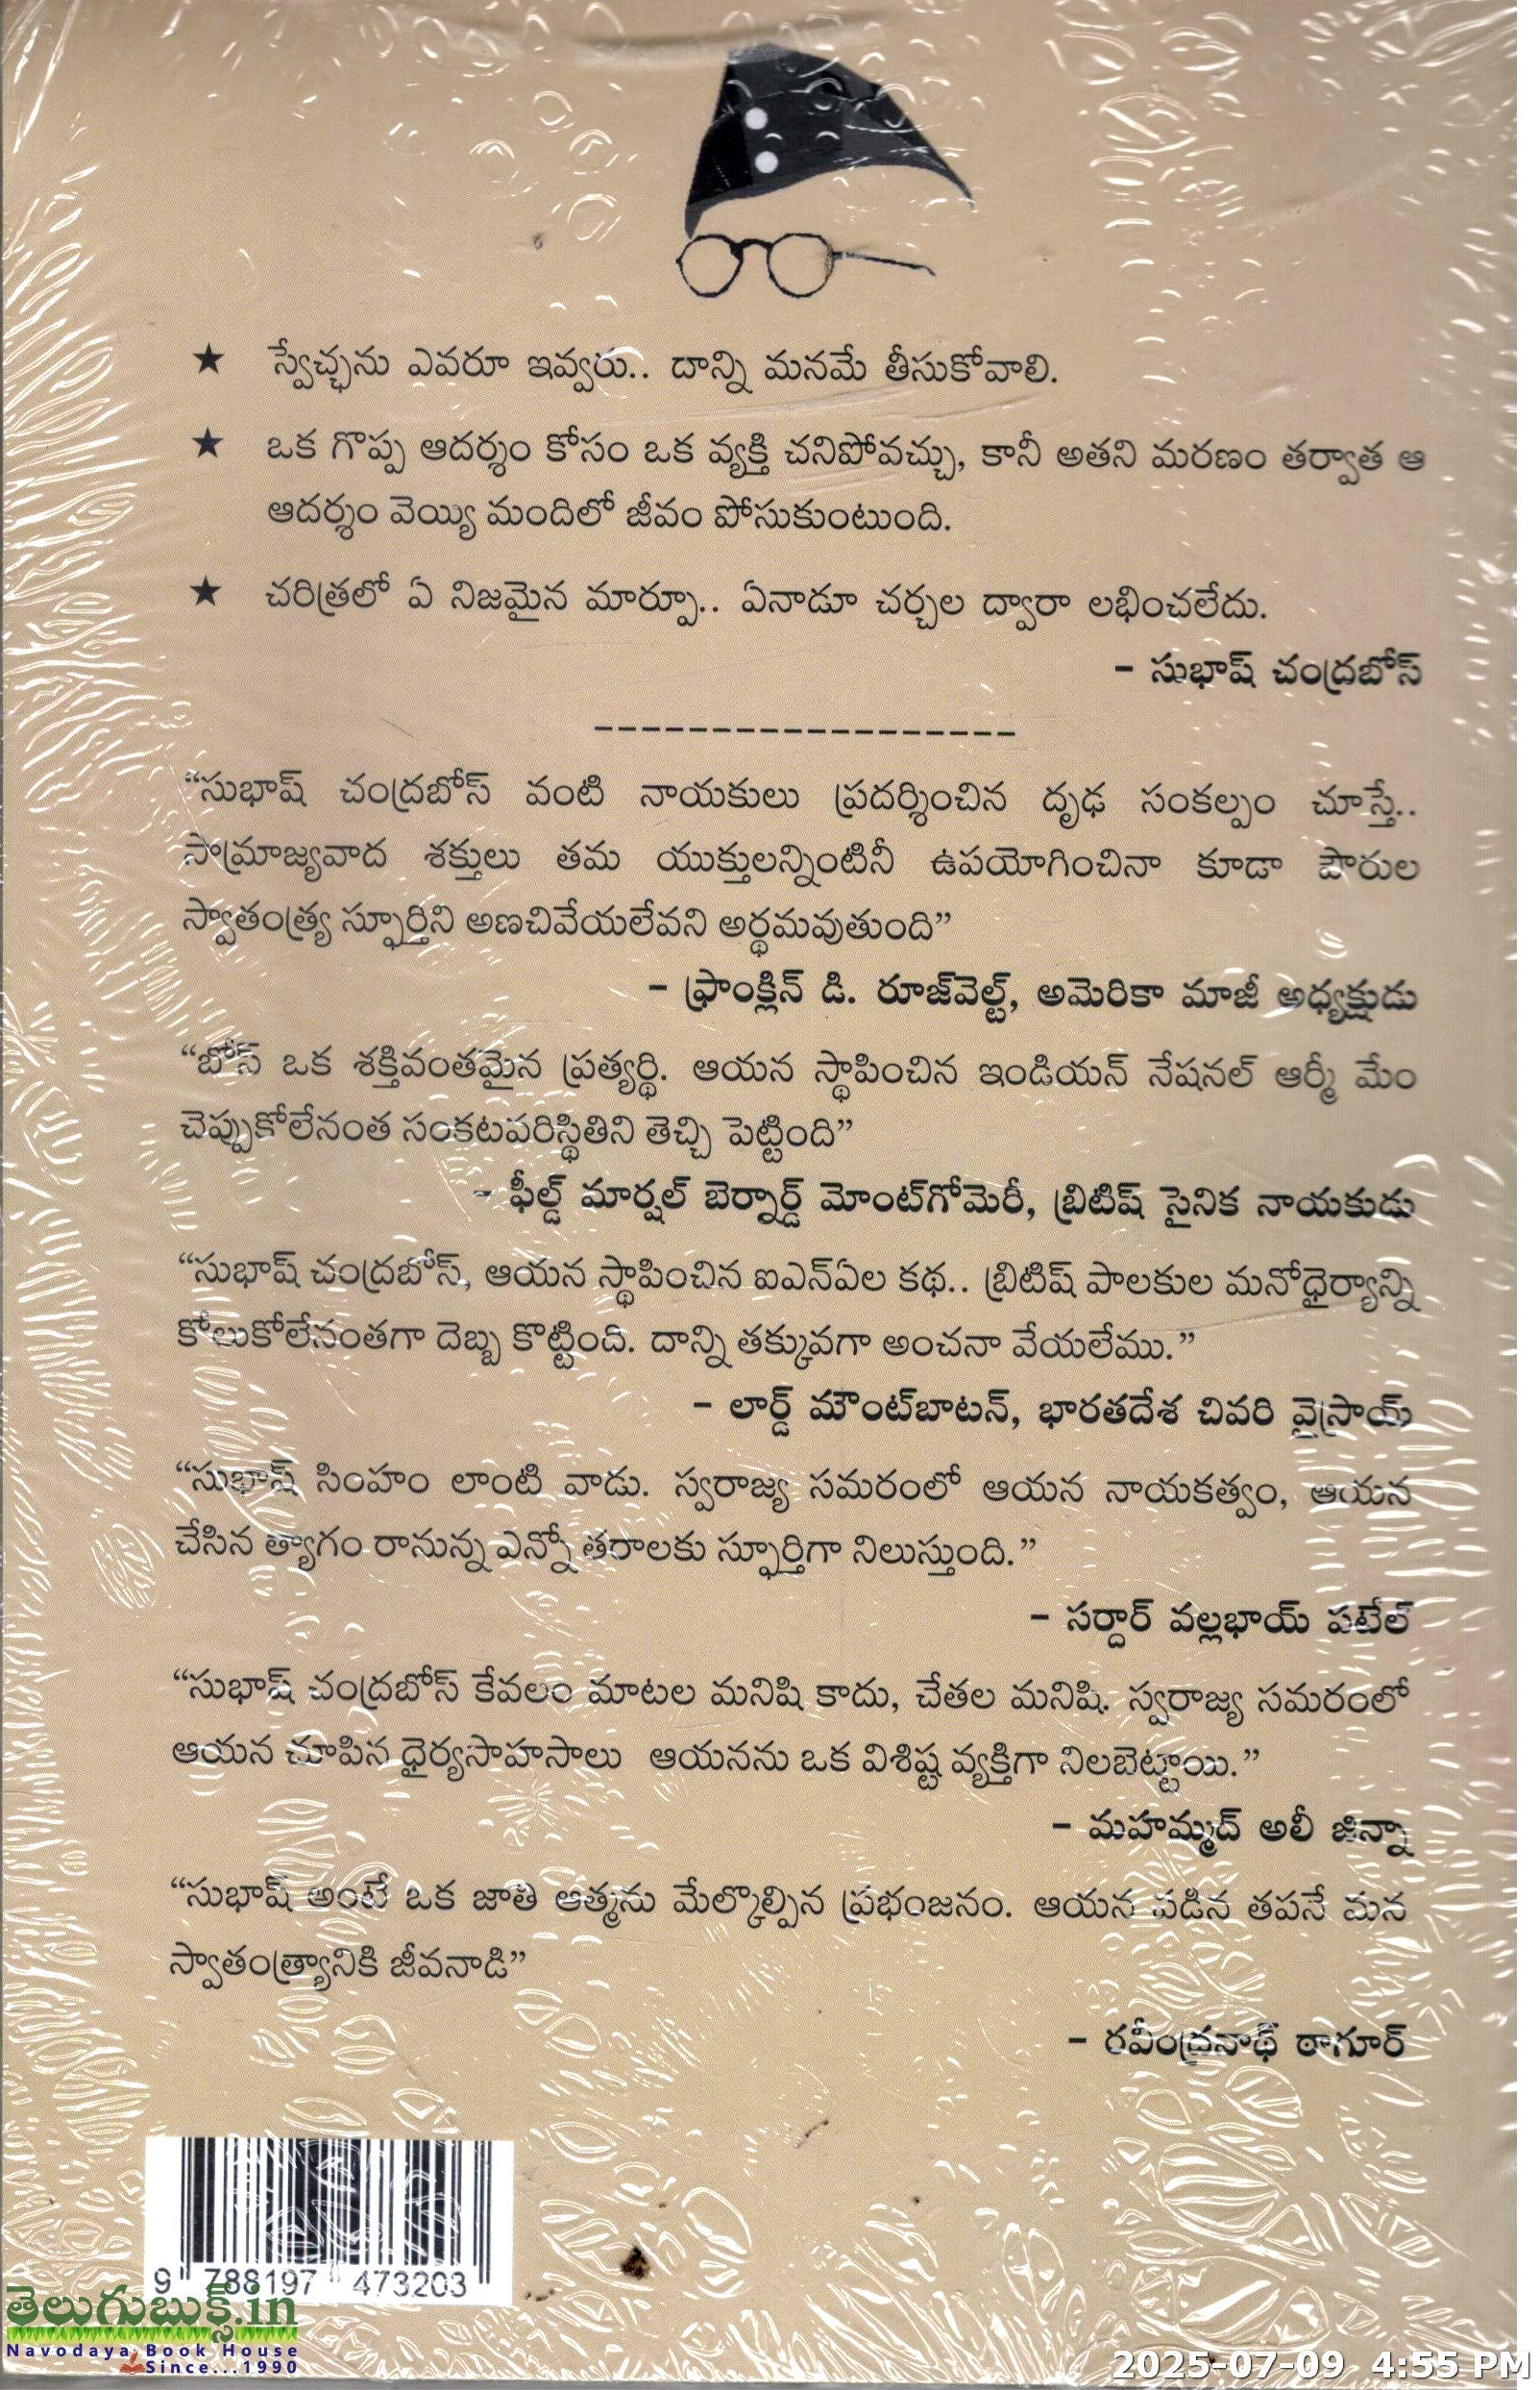 ★ స్వేచ్ఛను ఎవరూ ఇవ్వరు.. దాన్ని మనమే తీసుకోవాలి.
★ ఒక గొప్ప ఆదర్శం కోసం ఒక వ్యక్తి చనిపోవచ్చు, కానీ అతని మరణం తర్వాత ఆ
ఆదర్శం వెయ్యి మందిలో జీవం పోసుకుంటుంది.
★ చరిత్రలో ఏ నిజమైన మార్పూ.. ఏనాడూ చర్చల ద్వారా లభించలేదు.
– సుభాష్ చంద్రబోస్
------------------
“సుభాష్ చంద్రబోస్ వంటి నాయకులు ప్రదర్శించిన దృఢ సంకల్పం చూస్తే..
సామ్రాజ్యవాద శక్తులు తమ యుక్తులన్నింటినీ ఉపయోగించినా కూడా పౌరుల
స్వాతంత్ర్య స్ఫూర్తిని అణచివేయలేవని అర్థమవుతుంది”
– ఫ్రాంక్లిన్ డి. రూజ్‌వెల్ట్, అమెరికా మాజీ అధ్యక్షుడు
“బోస్ ఒక శక్తివంతమైన ప్రత్యర్థి. ఆయన స్థాపించిన ఇండియన్ నేషనల్ ఆర్మీ మేం
చెప్పుకోలేనంత సంకటపరిస్థితిని తెచ్చి పెట్టింది”
- ఫీల్డ్ మార్షల్ బెర్నార్డ్ మోంట్‌గోమెరీ, బ్రిటిష్ సైనిక నాయకుడు
“సుభాష్ చంద్రబోస్, ఆయన స్థాపించిన ఐఎన్ఏల కథ.. బ్రిటిష్ పాలకుల మనోధైర్యాన్ని
కోలుకోలేనంతగా దెబ్బ కొట్టింది. దాన్ని తక్కువగా అంచనా వేయలేము.”
– లార్డ్ మౌంట్‌బాటన్, భారతదేశ చివరి వైస్రాయ్
“సుభాష్ సింహం లాంటి వాడు. స్వరాజ్య సమరంలో ఆయన నాయకత్వం, ఆయన
చేసిన త్యాగం రానున్న ఎన్నో తరాలకు స్ఫూర్తిగా నిలుస్తుంది.”
– సర్దార్ వల్లభాయ్ పటేల్
“సుభాష్ చంద్రబోస్ కేవలం మాటల మనిషి కాదు, చేతల మనిషి. స్వరాజ్య సమరంలో
ఆయన చూపిన ధైర్యసాహసాలు ఆయనను ఒక విశిష్ట వ్యక్తిగా నిలబెట్టాయి.”
– మహమ్మద్ అలీ జిన్నా
“సుభాష్ అంటే ఒక జాతి ఆత్మను మేల్కొల్పిన ప్రభంజనం. ఆయన పడిన తపనే మన
స్వాతంత్ర్యానికి జీవనాడి”
– రవీంద్రనాథ్ ఠాగూర్
9 788197 473203
తెలుగుబుక్స్.in
Navodaya Book House
Since...1990
2025-07-09 4:55 PM